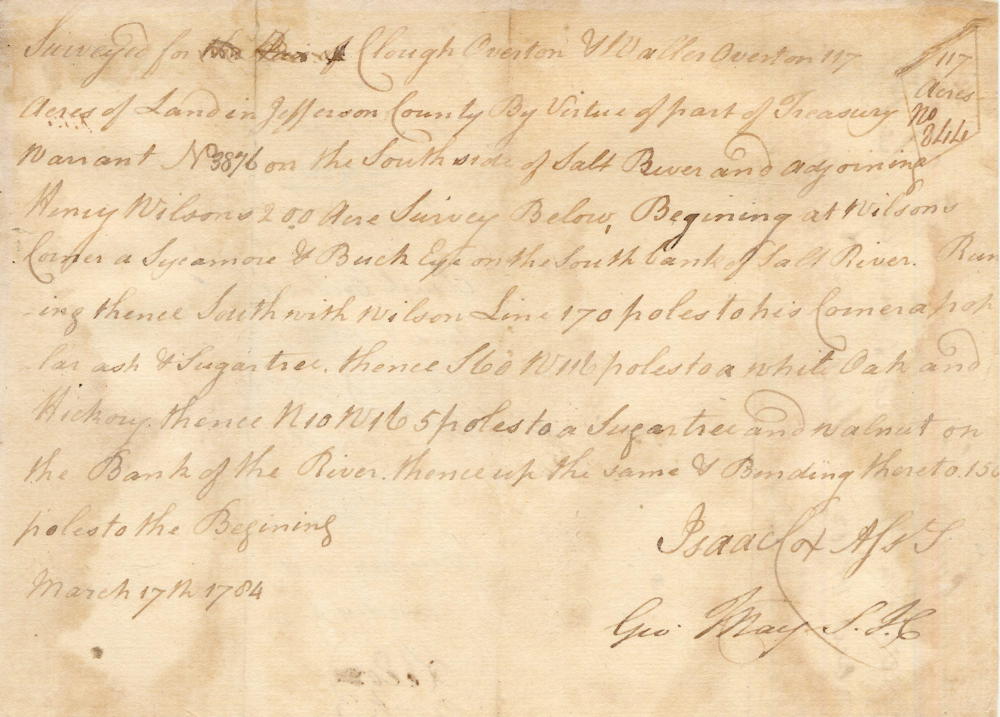 Survey'd for Clough Overton & Waller Overton 117
Acres of Land in Jefferson County By Virtue of part of Treasury
Warrant No 3876 on the South side of Salt River and adjoining
Henry Wilsons 200 Acre Survey Below, Begining at Wilsons
Corner a Sycamore & Buck Eye on the South bank of Salt River. Run
-ing thence South with Wilson Line 170 poles to his Corner a pop
lar ash & Sugartree. thence S60 W116 poles to a white Oak and
Hickory. thence N10 W165 poles to a Sugartree and walnut on
the Bank of the River. thence up the same & Bending thereto. 150
poles to the Begining
March 17th 1784
117
Acres
No
844
Isaac Cox Asst S
Geo. May S.J.C